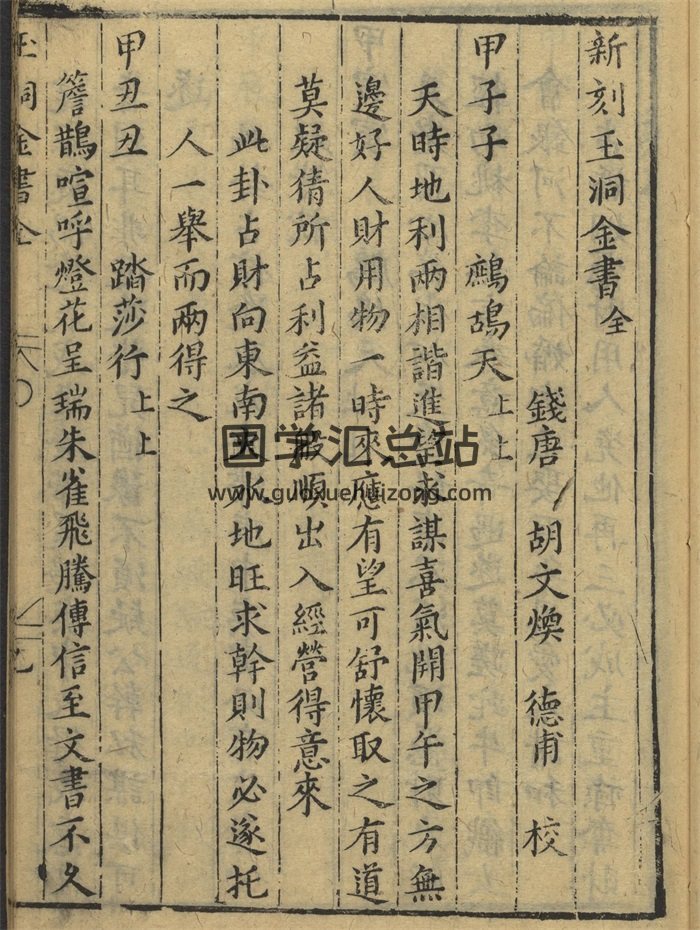 新刻玉洞金書全
錢唐 胡文煥 德甫 校
甲子子 鷓鴣天上上
天時地利兩相諧進望求謀喜氣開甲午之方無
邊好人財用物一時來應有望可舒懷取之有道
莫疑猜所占利益諸般順出入經營得意來
此卦占財向東南火水地旺求幹則物必遂托
人一舉而兩得之
甲丑丑 踏莎行上上
簷鵲喧呼燈花呈瑞朱雀飛騰傳信至文書不久
玉洞金書全
国学汇总站
www.guoxuehuizong.com